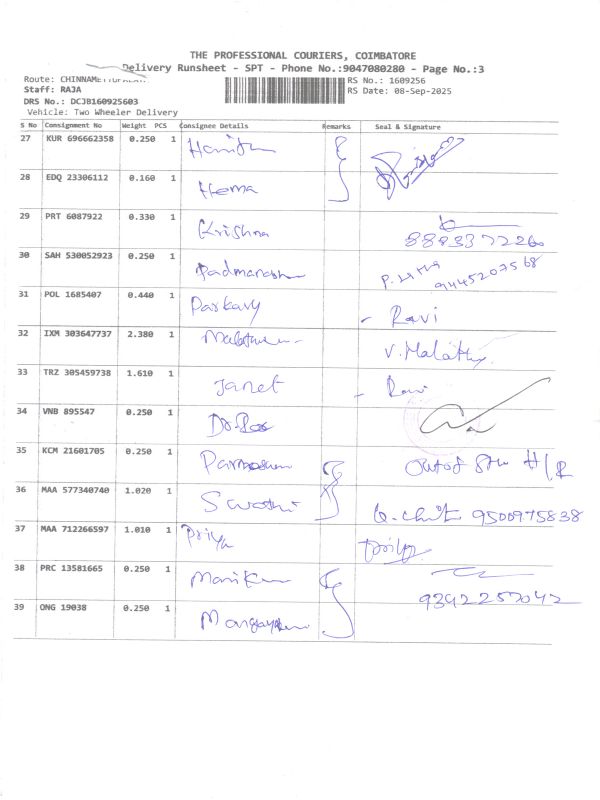 THE PROFESSIONAL COURIERS, COIMBATORE
Delivery Runsheet - SPT - Phone No.:9047080280 - Page No.:3
Route: RS No.: 1609256
Staff: RAJA RS Date: 08-Sep-2025
DRS No.: DCJB160925603
Vehicle: Two Wheeler Delivery
S No Consignment No Weight PCS Consignee Details Remarks Seal & Signature
27 KUR 696662358 0.250 1
28 EDQ 23306112 0.160 1 Hema
29 PRT 6087922 0.330 1 Krishna
8883377226
30 SAH 530052923 0.250 1 9445207568
31 POL 1685407 0.440 1 Ravi
32 IXM 303647737 2.380 1 V. Malathy
33 TRZ 305459738 1.610 1 Janet - Ravi
34 VNB 895547 0.250 1
35 KCM 21601705 0.250 1 out of stn
36 MAA 577340740 1.020 1 Swathi 9500975838
37 MAA 712266597 1.010 1 Priya
38 PRC 13581665 0.250 1
9342257042
39 ONG 19038 0.250 1